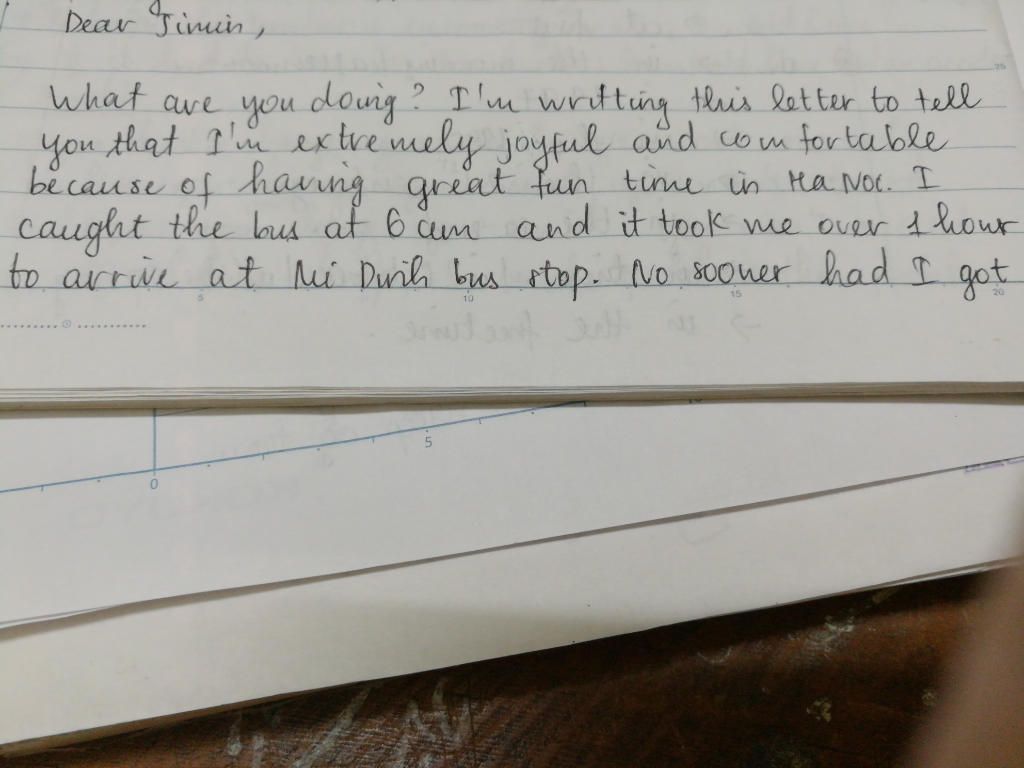 Dear Jimin,
What are you doing? I'm writting this letter to tell
you that I'm extremely joyful and comfortable
because of having great fun time in Ha Noi. I
caught the bus at 6 am and it took me over 1 hour
to arrive at Mi Dinh bus stop. No sooner had I got
5
10
15
20
25
0
5